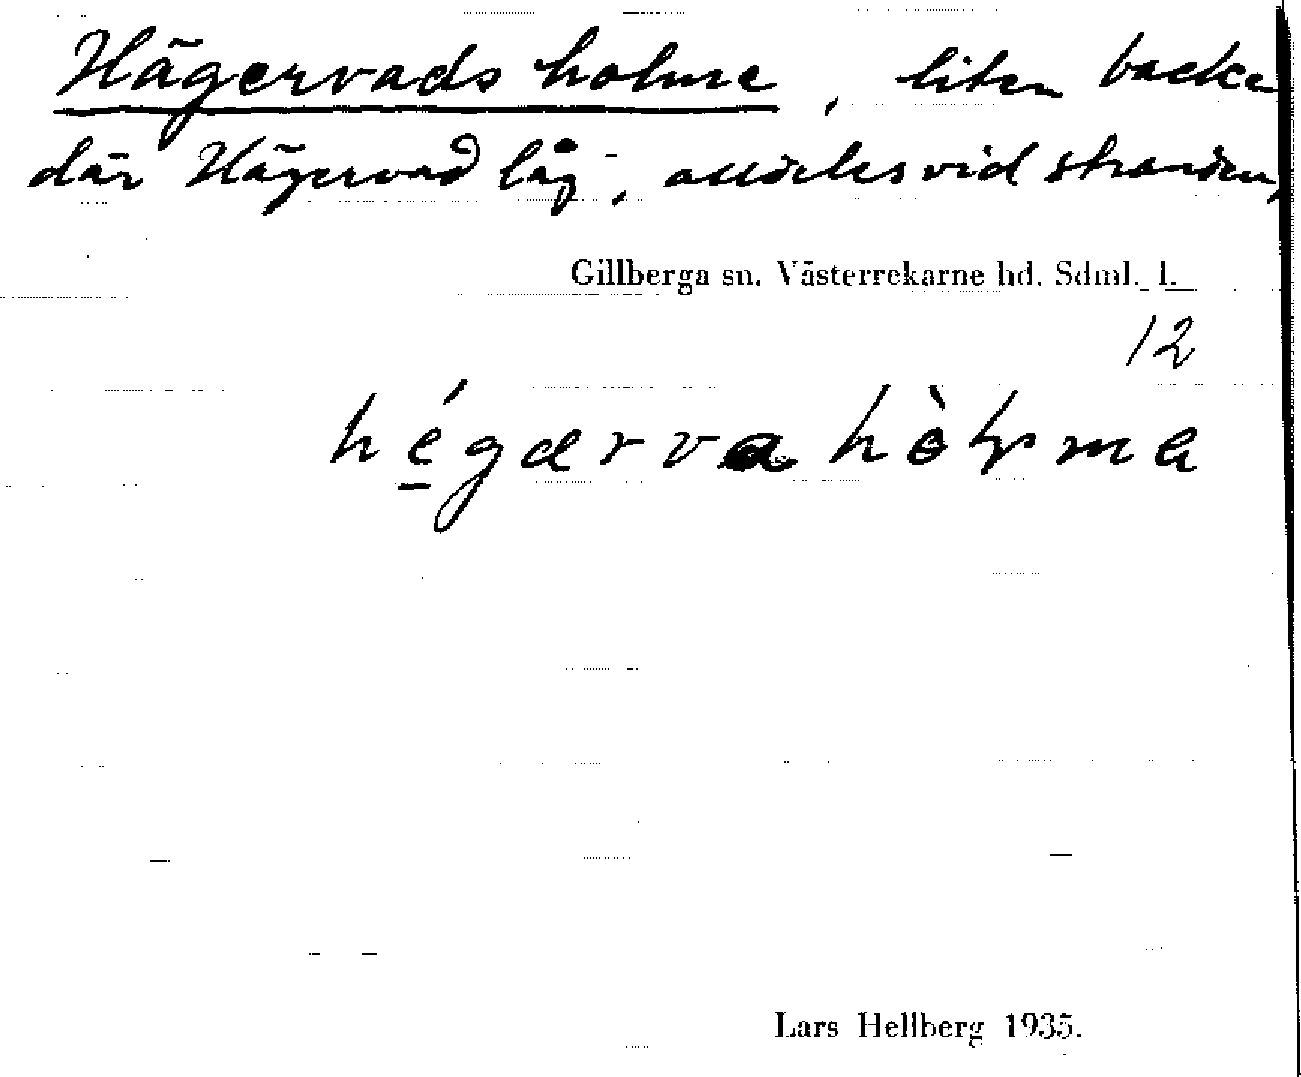 Hägervads holme, liten backe
där Hägervad låg, alldeles vid stranden,
Gillberga sn. Västerrekarne hd. Sdml. l.
12
Lars Hellberg 1935.